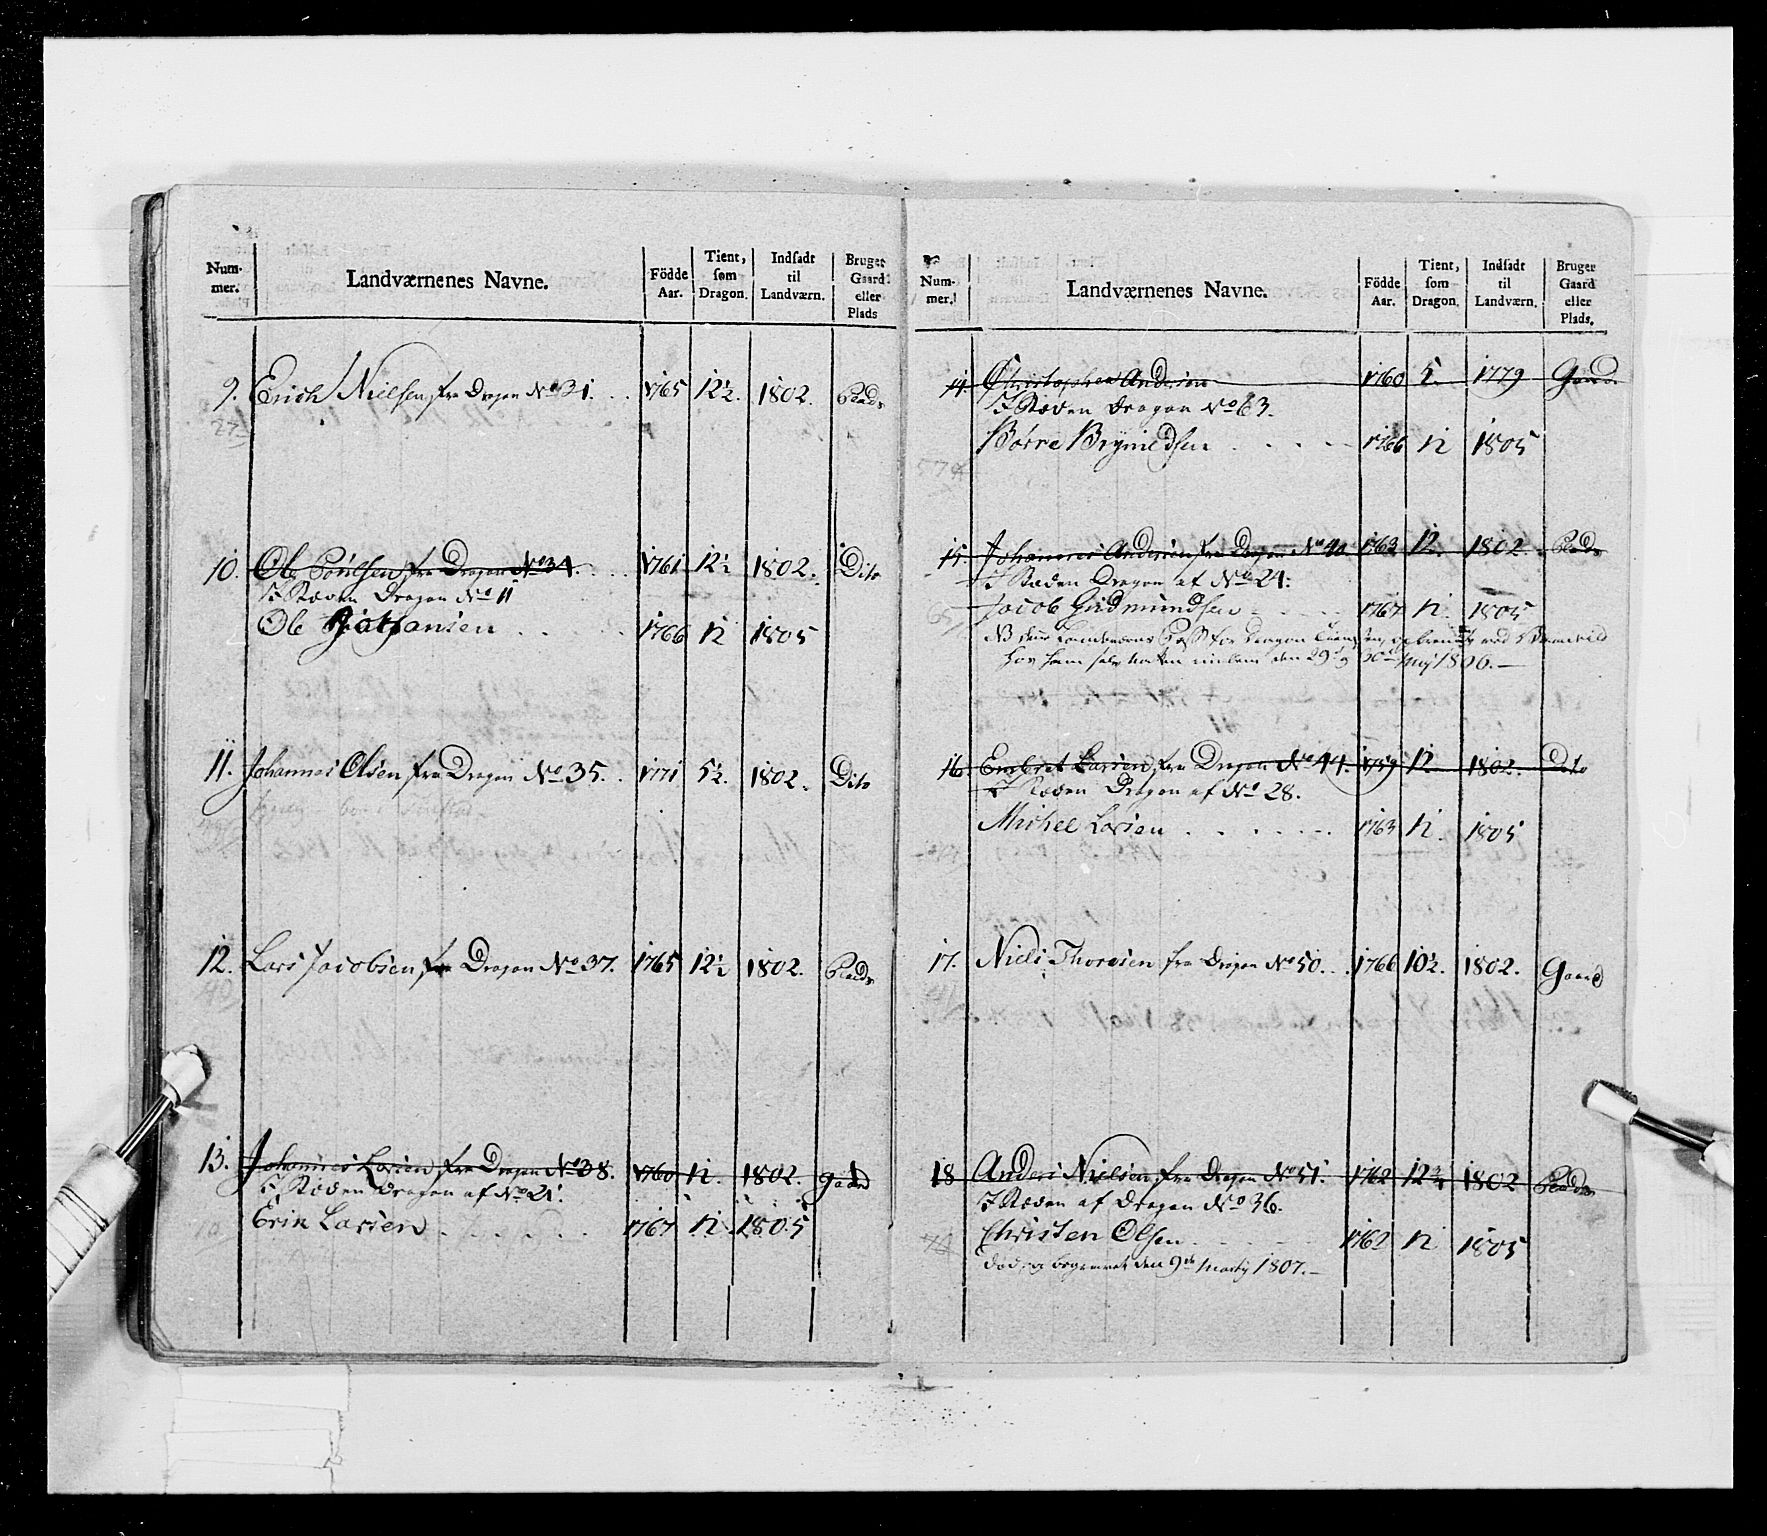 Num-
mer.
Landværnenes Navne.
Födde
Aar.
Tient,
som
Dragon.
Indsadt
til
Landværn.
Bruger
Gaard
eller
Plads
9. Erich Nielsen, fra Dragon No 31. 1765 12½. 1802. Plads
10. Ole Poulsen, fra Dragon No 34. 1761 12½ 1802. Dito
I Stæden Dragon No 11
Ole 1766 12 1805
11. Johannes Olsen, fra Dragon No 35. 1771 5½. 1802. Dito
12. Lars Jacobsen fra Dragon No 37. 1765 12½ 1802. Plads
13. Johannes Larsen, fra Dragon No 38. 1760 12. 1802. Gaard
I Stæden Dragon af No 21.
Erik Larsen 1767 12. 1805
Num-
mer.
Landværnenes Navne.
Födde
Aar.
Tient,
som
Dragon.
Indsadt
til
Landværn.
Bruger
Gaard
eller
Plads.
14. Christopher Andersen 1760 5. 1779 Gaard
I Stæden Dragon No 63.
Børre Brynildsen 1766 12 1805
15. Johannes Andersen fra Dragon No 40 1763 12. 1802 Plads
I Stæden Dragon af No 24.
Jacob Gudmundsen 1767 12. 1805
den 29de og 30de May 1806.
16. Embret Larsen, fra Dragon No 44. 1759 12 1802. Dito
I Stæden Dragon af No 28.
Michel Larsen 1763 12. 1805
17. Niels Thorsen fra Dragon No 50. 1766 10½. 1802. Gaard
18 Anders Nielsen, fra Dragon No 51. 1762 12¾ 1802 Plads
I Stæden af Dragon No 36.
Christen Olsen 1762 12 1805
død og begravet den 9de Marty 1807.